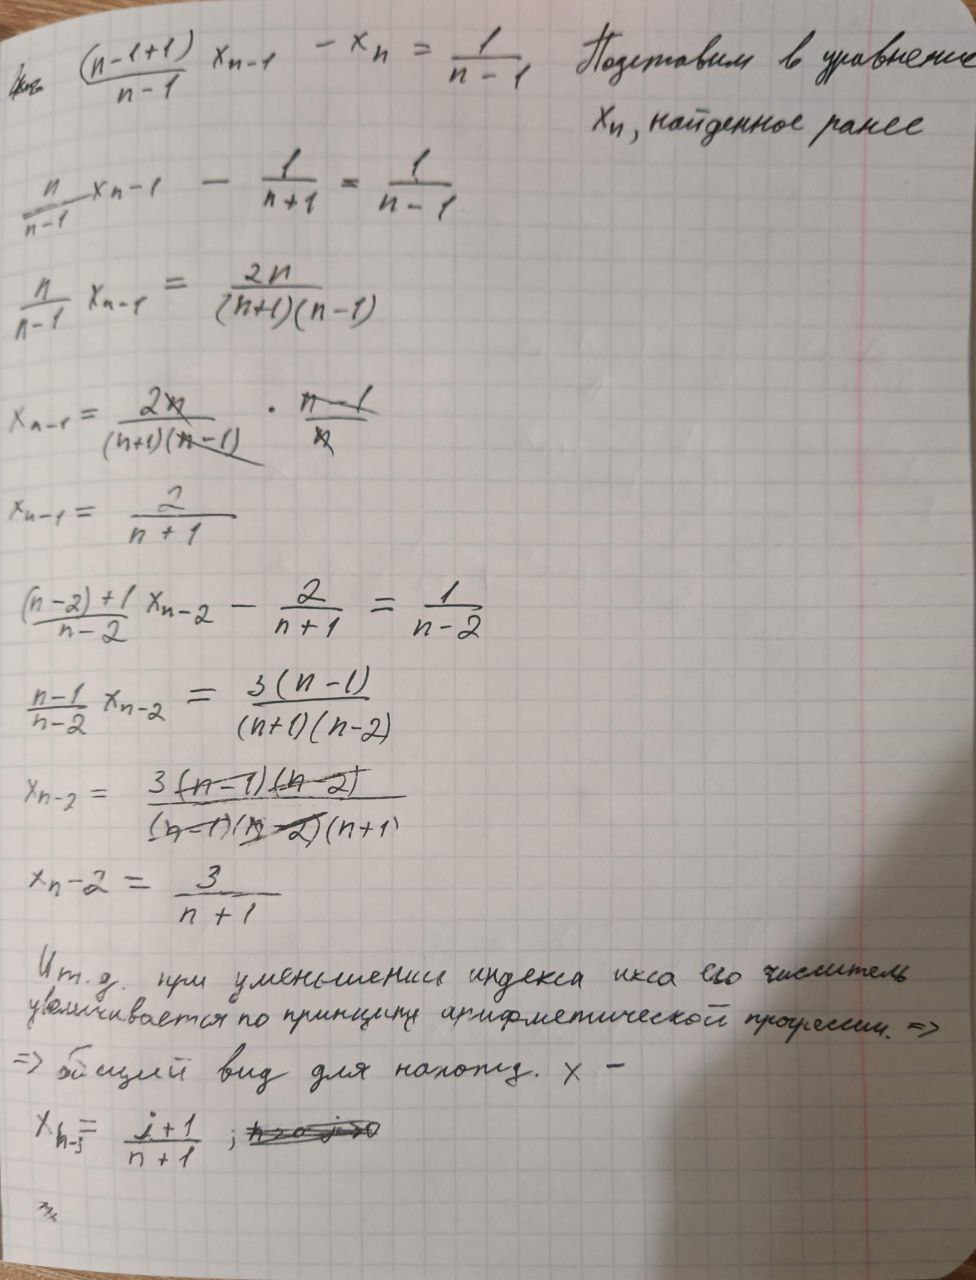 (n-1+1)/(n-1) x_{n-1} - x_n = 1/(n-1) Подставим в уравнение
x_n, найденное ранее
n/(n-1) x_{n-1} - 1/(n+1) = 1/(n-1)
n/(n-1) x_{n-1} = 2n/((n+1)(n-1))
x_{n-1} = 2n/((n+1)(n-1)) · (n-1)/n
x_{n-1} = 2/(n+1)
((n-2)+1)/(n-2) x_{n-2} - 2/(n+1) = 1/(n-2)
(n-1)/(n-2) x_{n-2} = 3(n-1)/((n+1)(n-2))
x_{n-2} = 3(n-1)(n-2)/((n-1)(n-2)(n+1))
x_{n-2} = 3/(n+1)
И т.д. при уменьшении индекса икса его числитель
увеличивается по принципу арифметической прогрессии. =>
=> общий вид для нахожд. x -
x_{n-j} = (j+1)/(n+1) ;